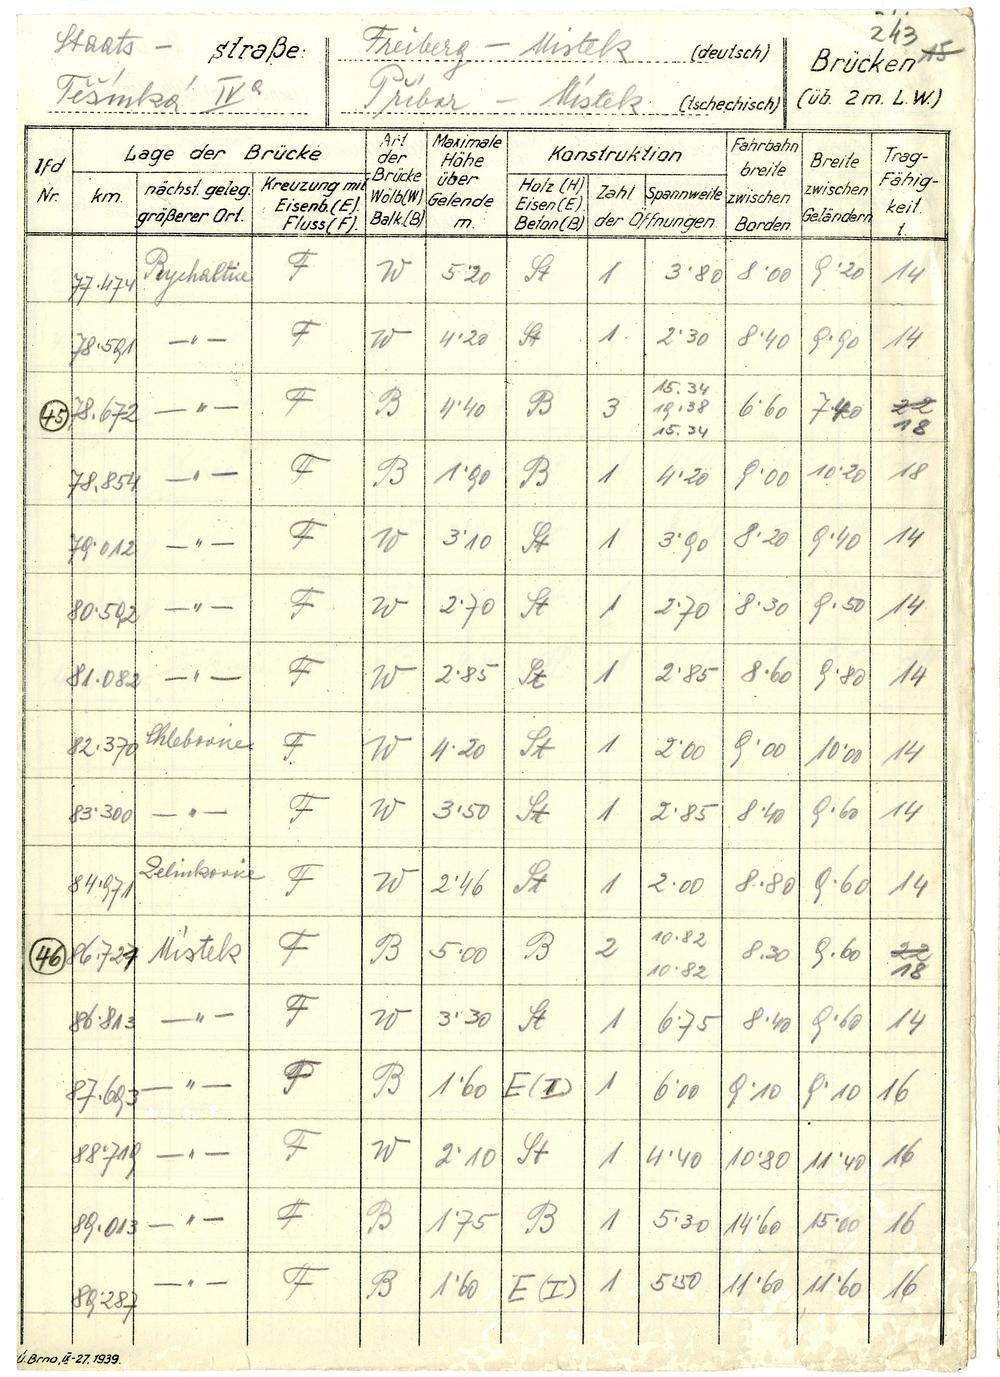 243
Staats - straße: Freiberg - Mistek (deutsch) Brücken 15
Těšínká IVa Příbor - Místek (tschechisch) (üb. 2 m. L.W.)
lfd Nr. Lage der Brücke Art der Brücke Wölb(W) Balk(B) Maximale Höhe über Gelende m. Konstruktion Fahrbahn breite zwischen Borden Breite zwischen Geländern Tragfähigkeit t.
km. nächst. geleg. größerer Ort. Kreuzung mit Eisenb.(E). Fluss(F). Holz (H) Eisen(E). Beton(B) Zahl Spannweite der Öffnungen
77.474 Rychaltice F W 5·20 St 1 3·80 8·00 9·20 14
78·591 —"— F W 4·20 St 1 2·30 8·40 9·90 14
45 78.672 —"— F B 4·40 B 3 15.34 19.38 15.34 6·60 7·40 22 18
78.854 —"— F B 1·90 B 1 4·20 9·00 10·20 18
79·012 —"— F W 3·10 St 1 3·90 8·20 9·40 14
80·592 —"— F W 2·70 St 1 2·70 8·30 9·50 14
81·082 —"— F W 2·85 St 1 2·85 8·60 9·80 14
82·370 Chlebovice F W 4·20 St 1 2·00 9·00 10·00 14
83·300 —"— F W 3·50 St 1 2·85 8·40 9·60 14
84·971 Zelinkovice F W 2·46 St 1 2·00 8·80 9·60 14
46 86.727 Místek F B 5·00 B 2 10.82 10·82 8.30 9.60 22 18
86·813 —"— F W 3·30 St 1 6·75 8·40 9·60 14
87.693 —"— F B 1·60 E(I) 1 6·00 9·10 9·10 16
88·719 —"— F W 2·10 St 1 4·40 10·80 11·40 16
89.013 —"— F B 1·75 B 1 5·30 14·60 15·00 16
89·287 —"— F B 1·60 E(I) 1 5·50 11·60 11·60 16
Ú. Brno, IX-27. 1939.